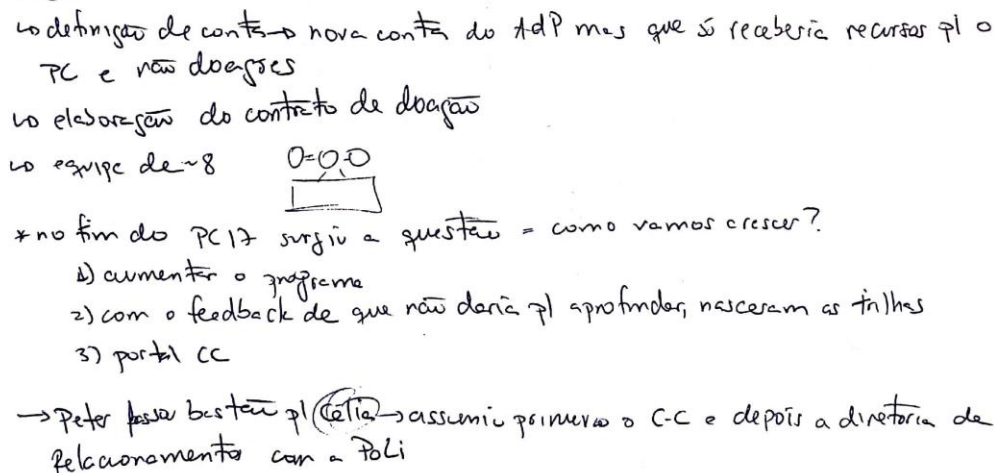 ↳ definição de conta → nova conta do AdP mas que só receberia recursos p/ o
PC e não doações
↳ elaboração do contrato de doação
↳ equipe de ~8
* no fim do PC17 surgiu a questão = como vamos crescer?
1) aumentar o programa
2) com o feedback de que não daria p/ aprofundar, nasceram as trilhas
3) portal CC
→ Peter passa bastão p/ Célia → assumiu primeiro o C-C e depois a diretoria de
Relacionamento com a Poli